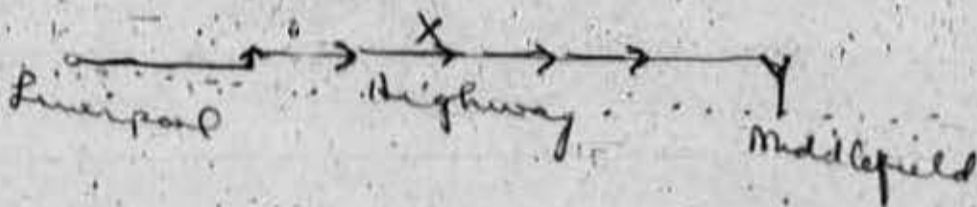 X
Liverpool
Highway
Middlefield